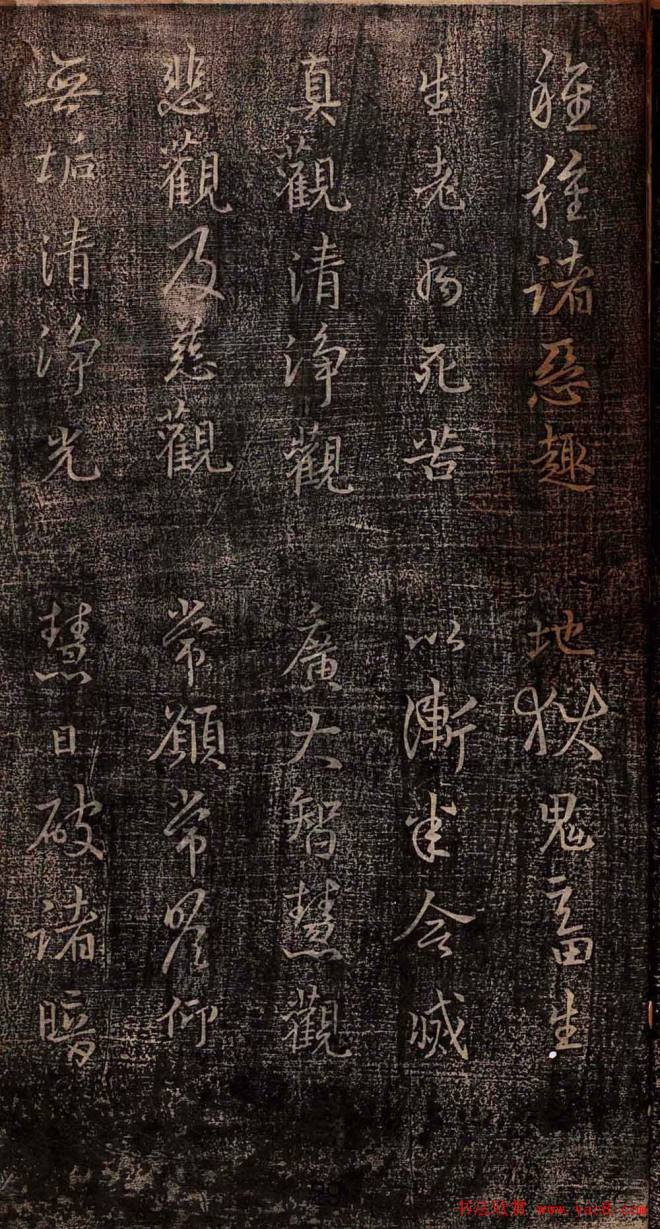 種種諸惡趣　地獄鬼畜生
生老病死苦　以漸悉令滅
真觀清淨觀　廣大智慧觀
悲觀及慈觀　常願常瞻仰
無垢清淨光　慧日破諸暗
书法欣赏 www.yac8.com